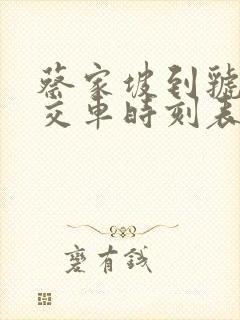 蔡家坡到虢
交車時刻表
褻有錢